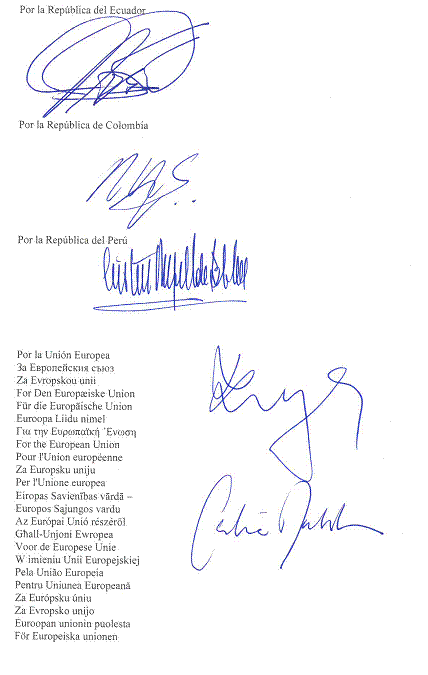 Por la República del Ecuador
Por la República de Colombia
Por la República del Perú
Por la Unión Europea
За Европейския съюз
Za Evropskou unii
For Den Europæiske Union
Für die Europäische Union
Euroopa Liidu nimel
Για την Ευρωπαϊκή Ένωση
For the European Union
Pour l'Union européenne
Za Europsku uniju
Per l'Unione europea
Eiropas Savienības vārdā –
Europos Sąjungos vardu
Az Európai Unió részéről
Għall-Unjoni Ewropea
Voor de Europese Unie
W imieniu Unii Europejskiej
Pela União Europeia
Pentru Uniunea Europeană
Za Európsku úniu
Za Evropsko unijo
Euroopan unionin puolesta
För Europeiska unionen